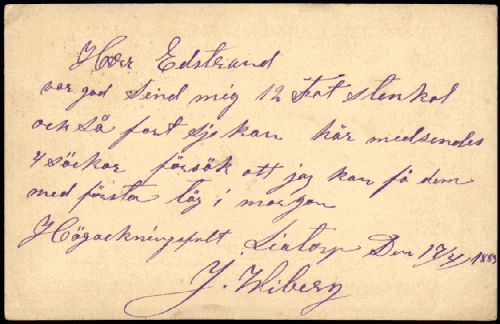 Herr Edstrand
var god Sind mig 12 Fat stenkol
och så fort sje kan här medsendes
4 säckar försök att jag kan få dem
med första tåg i morgon
Högacktningsfult Liatorp Den 17/4 1883
J. Wiberg